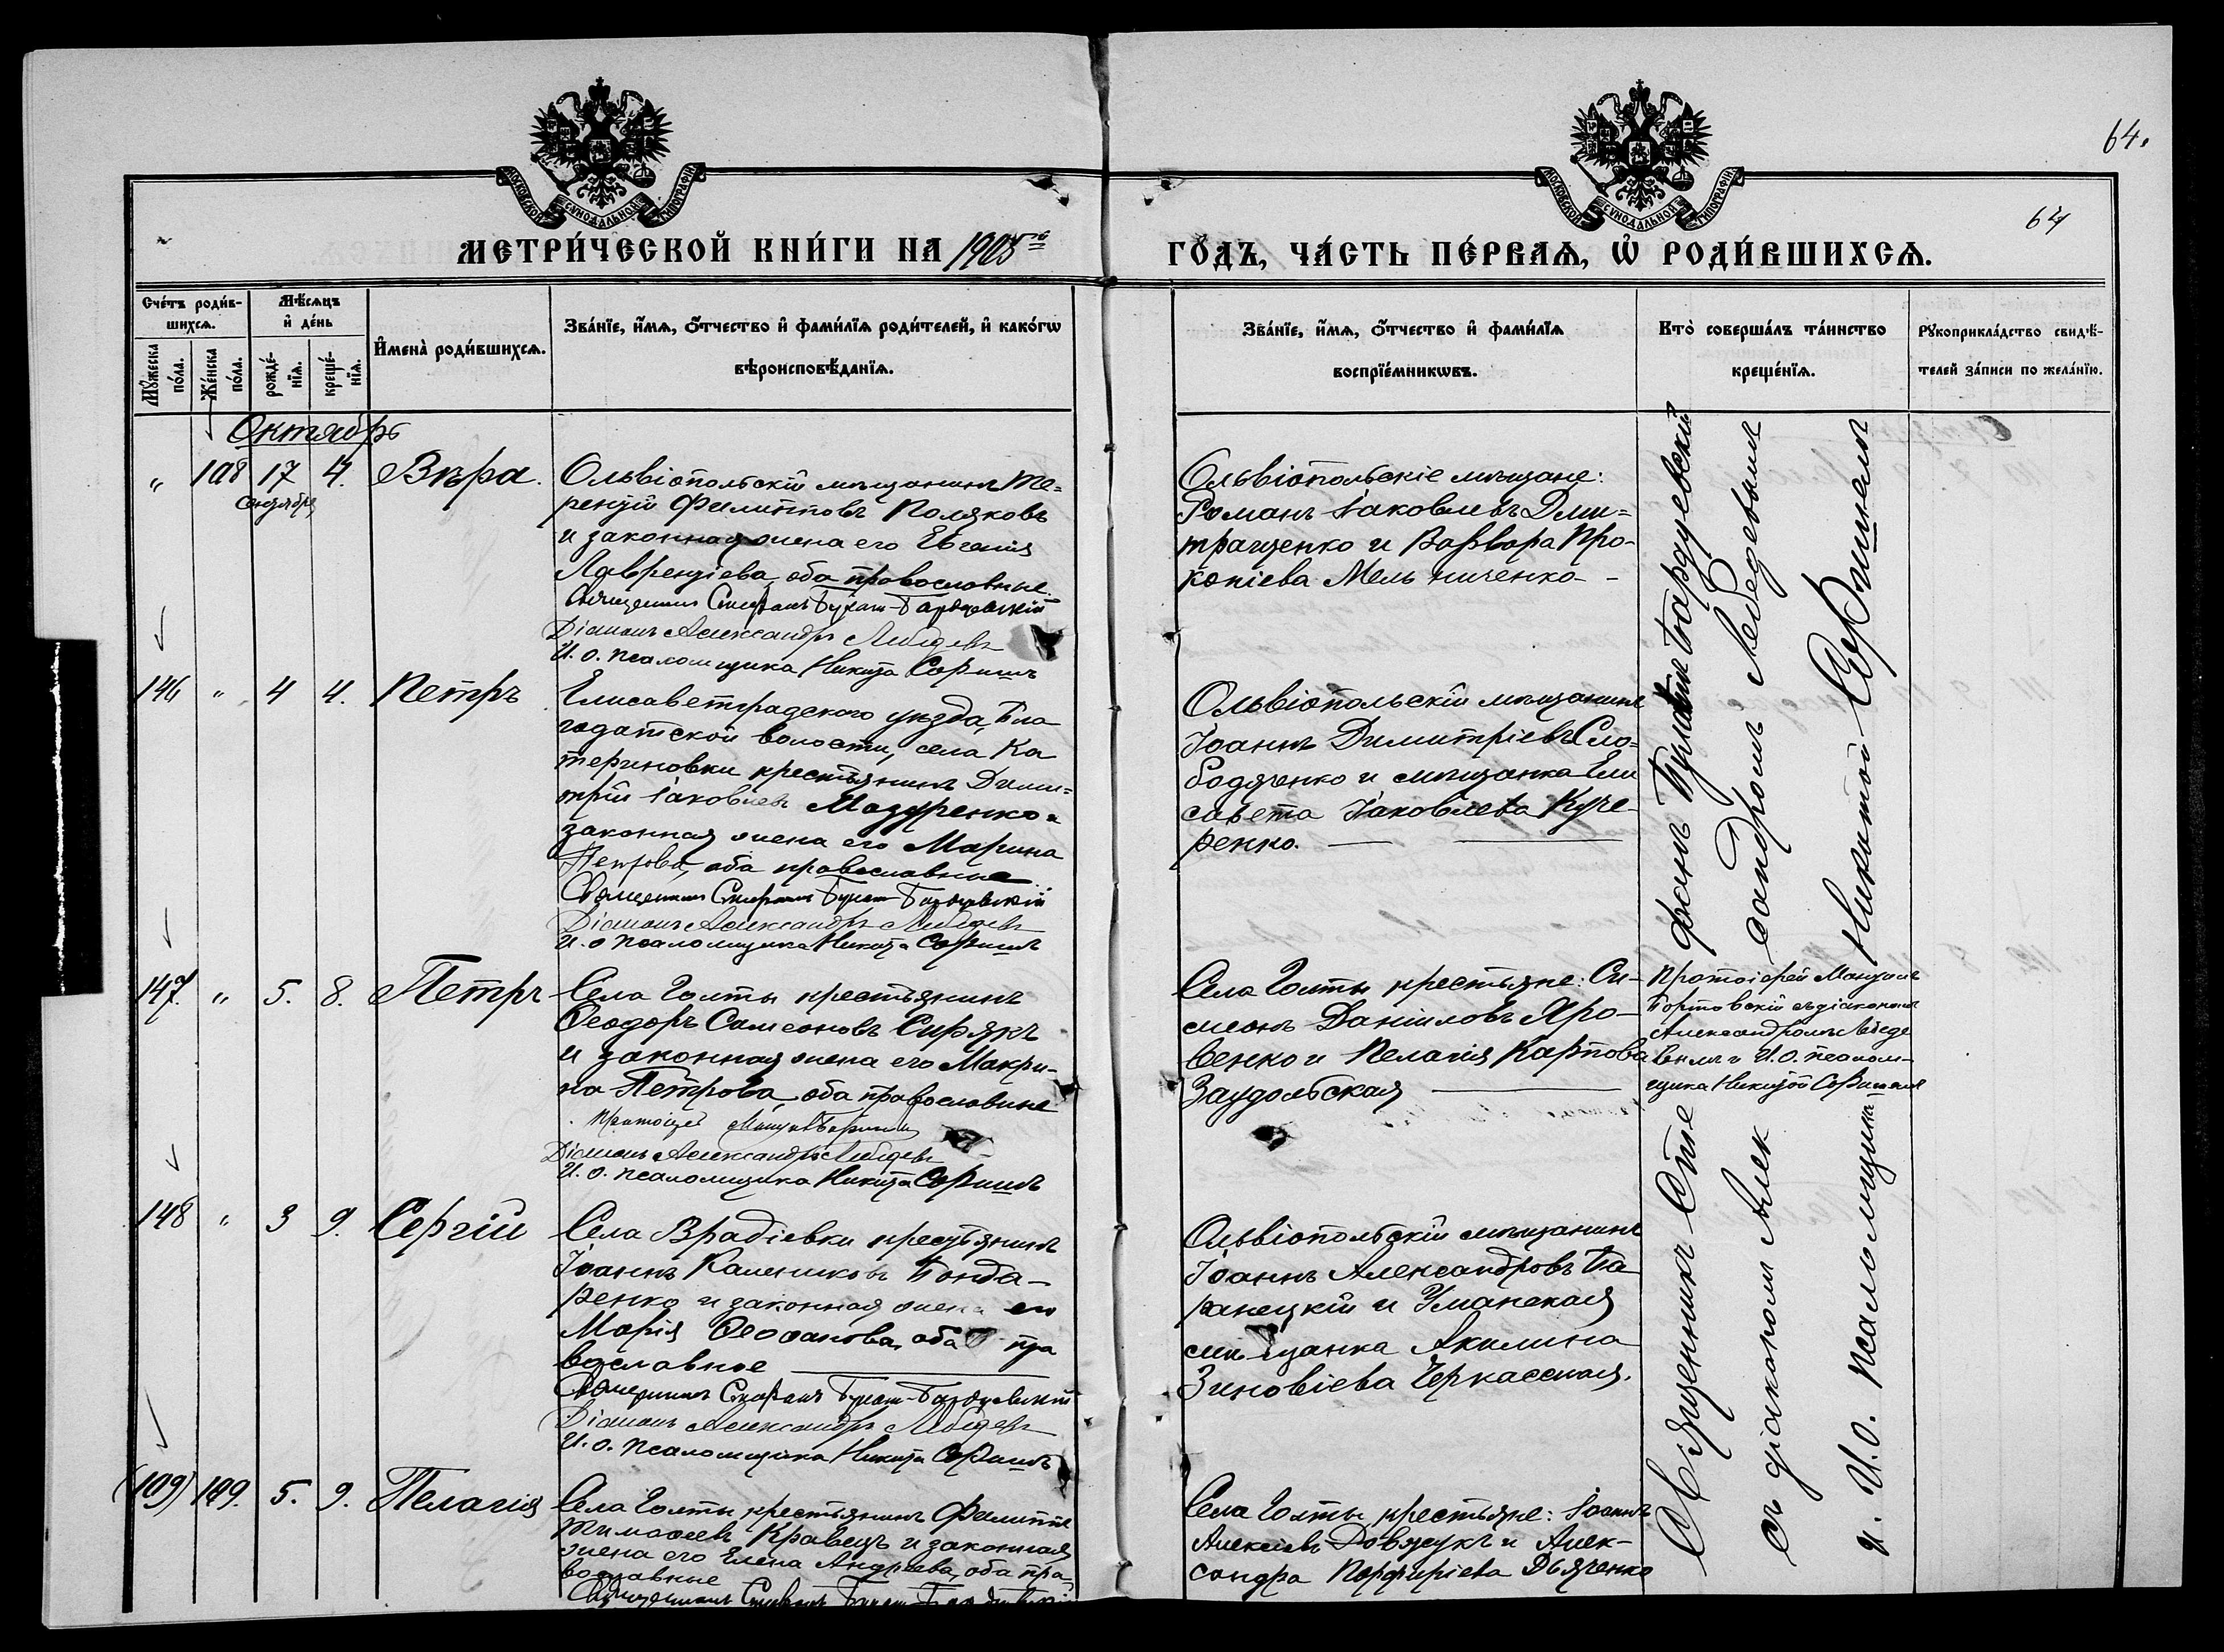 64.
64
МОСКОВСКОЙ СѴНОДАЛЬНОЙ ТИПОГРАФІИ
МОСКОВСКОЙ СѴНОДАЛЬНОЙ ТИПОГРАФІИ
МЕТРИ́ЧЕСКОЙ КНИ́ГИ НА 1905го
ГО́ДЪ, ЧА́СТЬ ПЕ́РВАѦ, Ѡ҆ РОДИ́ВШИХСѦ.
Сче́тъ роди́в-
шихсѧ.
Мꙋ́жеска по́ла.
Же́нска по́ла.
Мѣ́сѧцъ
и҆ де́нь
рожде́-
нїѧ.
креще́-
нїѧ.
И҆мена̀ роди́вшихсѧ.
Зва́нїе, и҆́мѧ, ѻ҆́тчество и҆ фами́лїѧ роди́телей, и҆ како́гѡ
вѣроисповѣ́данїѧ.
Зва́нїе, и҆́мѧ, ѻ҆́тчество и҆ фами́лїѧ
воспрїе́мникѡвъ.
Кто̀ соверша́лъ та́инство
креще́нїѧ.
Рꙋкоприкла́дство свидѣ́-
телей за́писи по жела́нїю.
Октябрь
" 108 17 4. Вѣра.
Сентября
Ольвіопольскій мѣщанинъ Те=
рентій Филипповъ Поляковъ
и законная жена его Евгенія
Лаврентіева, оба православные.
Священникъ Стефанъ Булат-Бардуевскій
Діаконъ Александръ Лебедевъ
И. о. псаломщика Никита Сорминъ
Ольвіопольскіе мѣщане:
Романъ Іаковлевъ Дми=
тращенко и Варвара Про-
копіева Мельниченко -
146 " 4 4. Петръ
Елисаветградского уѣзда, Бла
годатской волости, села Ка
териновки крестьянинъ Дими=
трій Іаковлевъ Мазуренко и
законная жена его Марина
Петрова, оба православные
Священникъ Стефанъ Булат-Бардуевскій
Діаконъ Александръ Лебедевъ
И. о псаломщика Никита
Ольвіопольскій мѣщанинъ
Іоаннъ Димитріевъ Сло=
бодяенко и мѣщанка Ели
савета Іаковлева Куче-
ренко.
147. " 5. 8. Петръ
Села Голты крестьянинъ
Ѳеодоръ Самсоновъ Сирякъ
и законная жена его Макри-
на Петрова, оба православные
Протоіерей
Діаконъ Александръ Лебедевъ
И. о. псаломщика Никита
Села Голты крестьяне: Си-
меонъ Даніиловъ Яро-
венко и Пелагія Карпова
Заудольская
Протоіерей
съ діакономъ
Александромъ Лебеде
вымъ и И. О. псалом-
щика Никитой
148 " 3 9. Сергій
Села Врадіевки крестьянинъ
Іоаннъ Калениковъ Бонда-
ренко и законная жена его
Марія Ѳеофанова, оба пра
вославные
Священникъ Стефанъ Булат-Бардуевскій
Діаконъ Александръ Лебедевъ
И. о. псаломщика Никита
Ольвіопольскій мѣщанинъ
Іоаннъ Александровъ Ба
ранецкій и Уманская
мѣщанка Акилина
Зиновіева Черкасская.
(109) 109. 5. 9. Пелагія
Села Голты крестьянинъ Филиппъ
Тимоѳеевъ Кравецъ и законная
жена его Елена Андреева, оба пра-
вославные
Священникъ Стефанъ
Села Голты крестьяне: Іоаннъ
Алексіевъ Довжукъ и Алек-
сандра Порфиріева Дьяченко
Священникъ Сте
фанъ Булатъ Бардуевскій
съ діакономъ Алек
сандромъ Лебедевымъ
и. И.О. псаломщика
Никитой